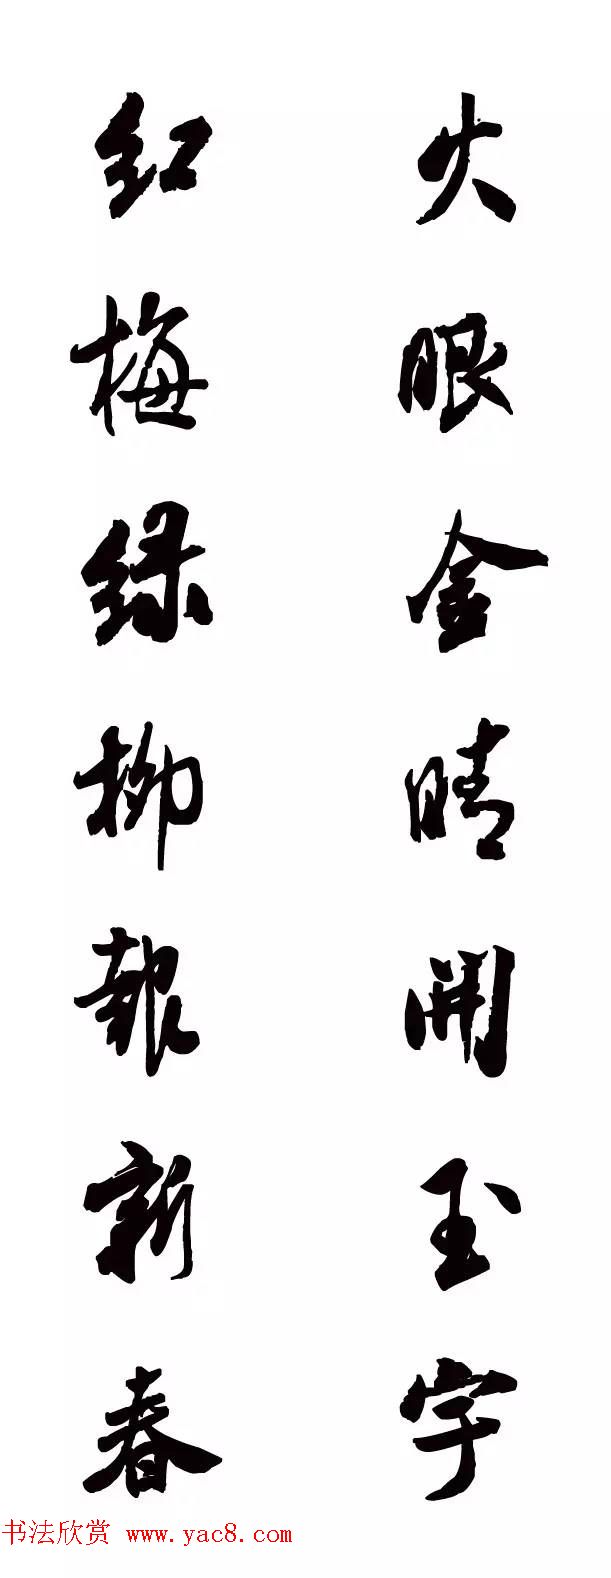 火眼金睛開玉宇
红梅绿柳報新春
书法欣赏 www.yac8.com